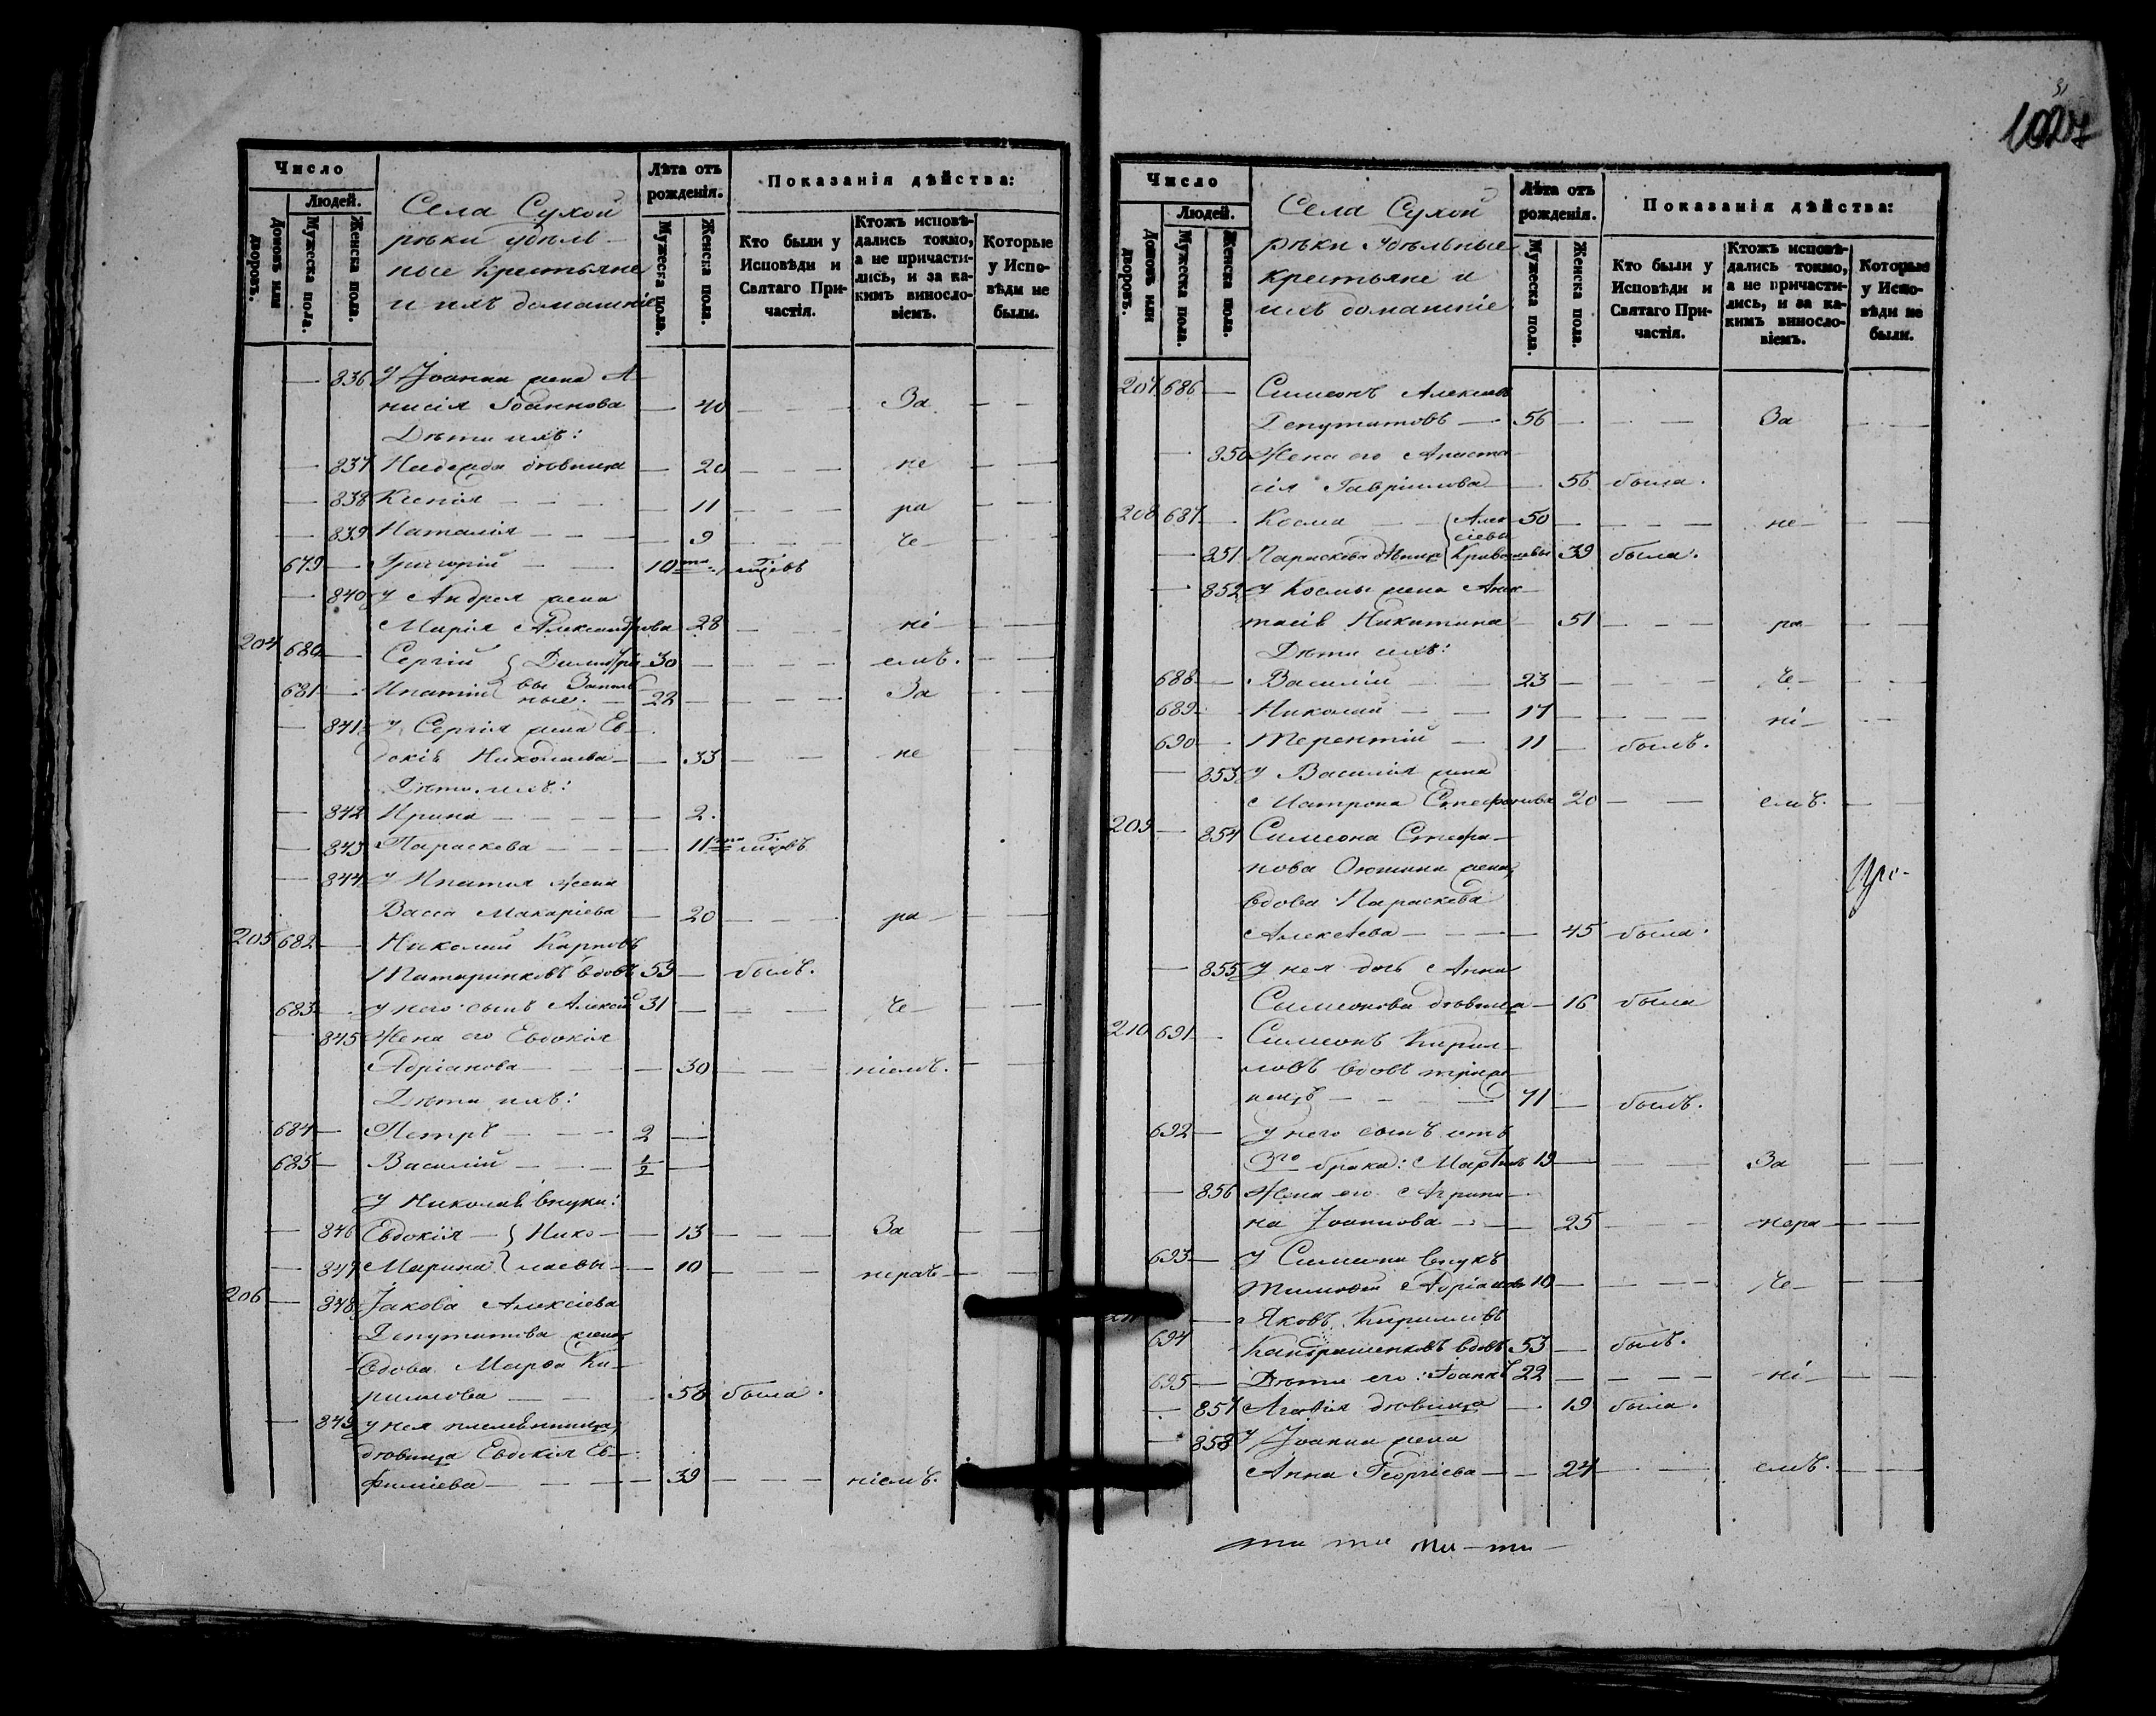 Число
Людей.
Домовъ или дворовъ.
Мужеска пола.
Женска пола.
Села Сухой
рѣки удѣль-
ные Крестьяне
и ихъ домашніе
Лѣта отъ
рожденія.
Мужеска пола.
Женска пола.
Показанія дѣйства:
Кто были у
Исповѣди и
Святаго При-
частія.
Ктожъ исповѣ-
дались токмо,
а не причасти-
лись, и за ка-
кимъ винословіемъ.
Которые
у Испо-
вѣди не
были.
836 У Іоанна жена А-
нисія Іоаннова — 40 — За
Дѣти ихъ:
837 Надежда дѣвица — 20 — не
838 Ксенія — 11 — ра
839 Наталія — 9 — че
679 — Григорій — 10
840 У Андрея жена
Марія Александрова 28 — ні
204 680 — Сергій { Димитріе- 30 — емъ.
681 — Ипатій — 22 — За
841 У Сергія жена Ев-
докія Николаева — 33 — не
Дѣти ихъ:
842 Ирина — 2.
843 Параскева — 11
844 У Ипатія жена
Васса Макаріева — 20 — ра
205 682 — Николай Карповъ
Татаринковъ вдовъ 59 — былъ.
683 — у него сынъ Алексій 31 — че
845 Жена его Евдокія
Адріанова — 30 — ніемъ.
Дѣти ихъ:
684 — Петръ — 2
685 — Василій — 1/2
У Николая внуки:
846 Евдокія — } Нико- — 13 — За
847 Марина } лаевы — 10 — нераче
206 — 848 Іакова Алексіева
Депутатова жена
вдова Марѳа Ки-
рилова — 58 была.
849 у нея племянница
дѣвица Евдокія Ев-
фиміева — 39 — ніемъ.
1027
Число
Людей.
Домовъ или дворовъ.
Мужеска пола.
Женска пола.
Села Сухой
рѣки Удѣльные
крестьяне и
ихъ домашніе
Лѣта отъ
рожденія.
Мужеска пола.
Женска пола.
Показанія дѣйства:
Кто были у
Исповѣди и
Святаго При-
частія.
Ктожъ исповѣ-
дались токмо,
а не причасти-
лись, и за ка-
кимъ винословіемъ.
Которые
у Испо-
вѣди не
были.
207 686 — Симеонъ Алексіевъ
Депутатовъ — 56 — За
850 Жена его Анаста-
сія Гавріилова — 56 была.
208 687 — Косма — { Алек- 50 — не
сіевы
851 Параскева дѣвица 39 была.
852 У Космы жена Анас-
тасія Никитина — 51 — ра
Дѣти ихъ:
688 — Василій — 23 — че
689 — Николай — 17 — ні
690 — Терентій — 11 — былъ.
853 У Василія жена
Матрона Стефанова 20 — емъ.
209 — 854 Симеона Стефа-
нова жена,
вдова Параскева
Алексѣева — 45 была.
855 У нея дочь Анна
Симеонова дѣвица — 16 была
210 691 — Симеонъ Кирил-
ловъ вдовъ
71 — былъ.
692 — у него сынъ отъ
3го брака: 19 — За
856 Жена его Агрипи-
на Іоаннова — 25 — нера
693 — У Симеона внукъ
Тимоѳей Адріановъ 10 — че
— Яковъ Кирилловъ
694 вдовъ 53 — былъ.
695 — Дѣти его: Іоаннъ 22 — ні
857 Агаѳія дѣвица — 19 была.
858 У Іоанна жена
Анна Георгіева — 24 — емъ.
ти ти ти - ти -